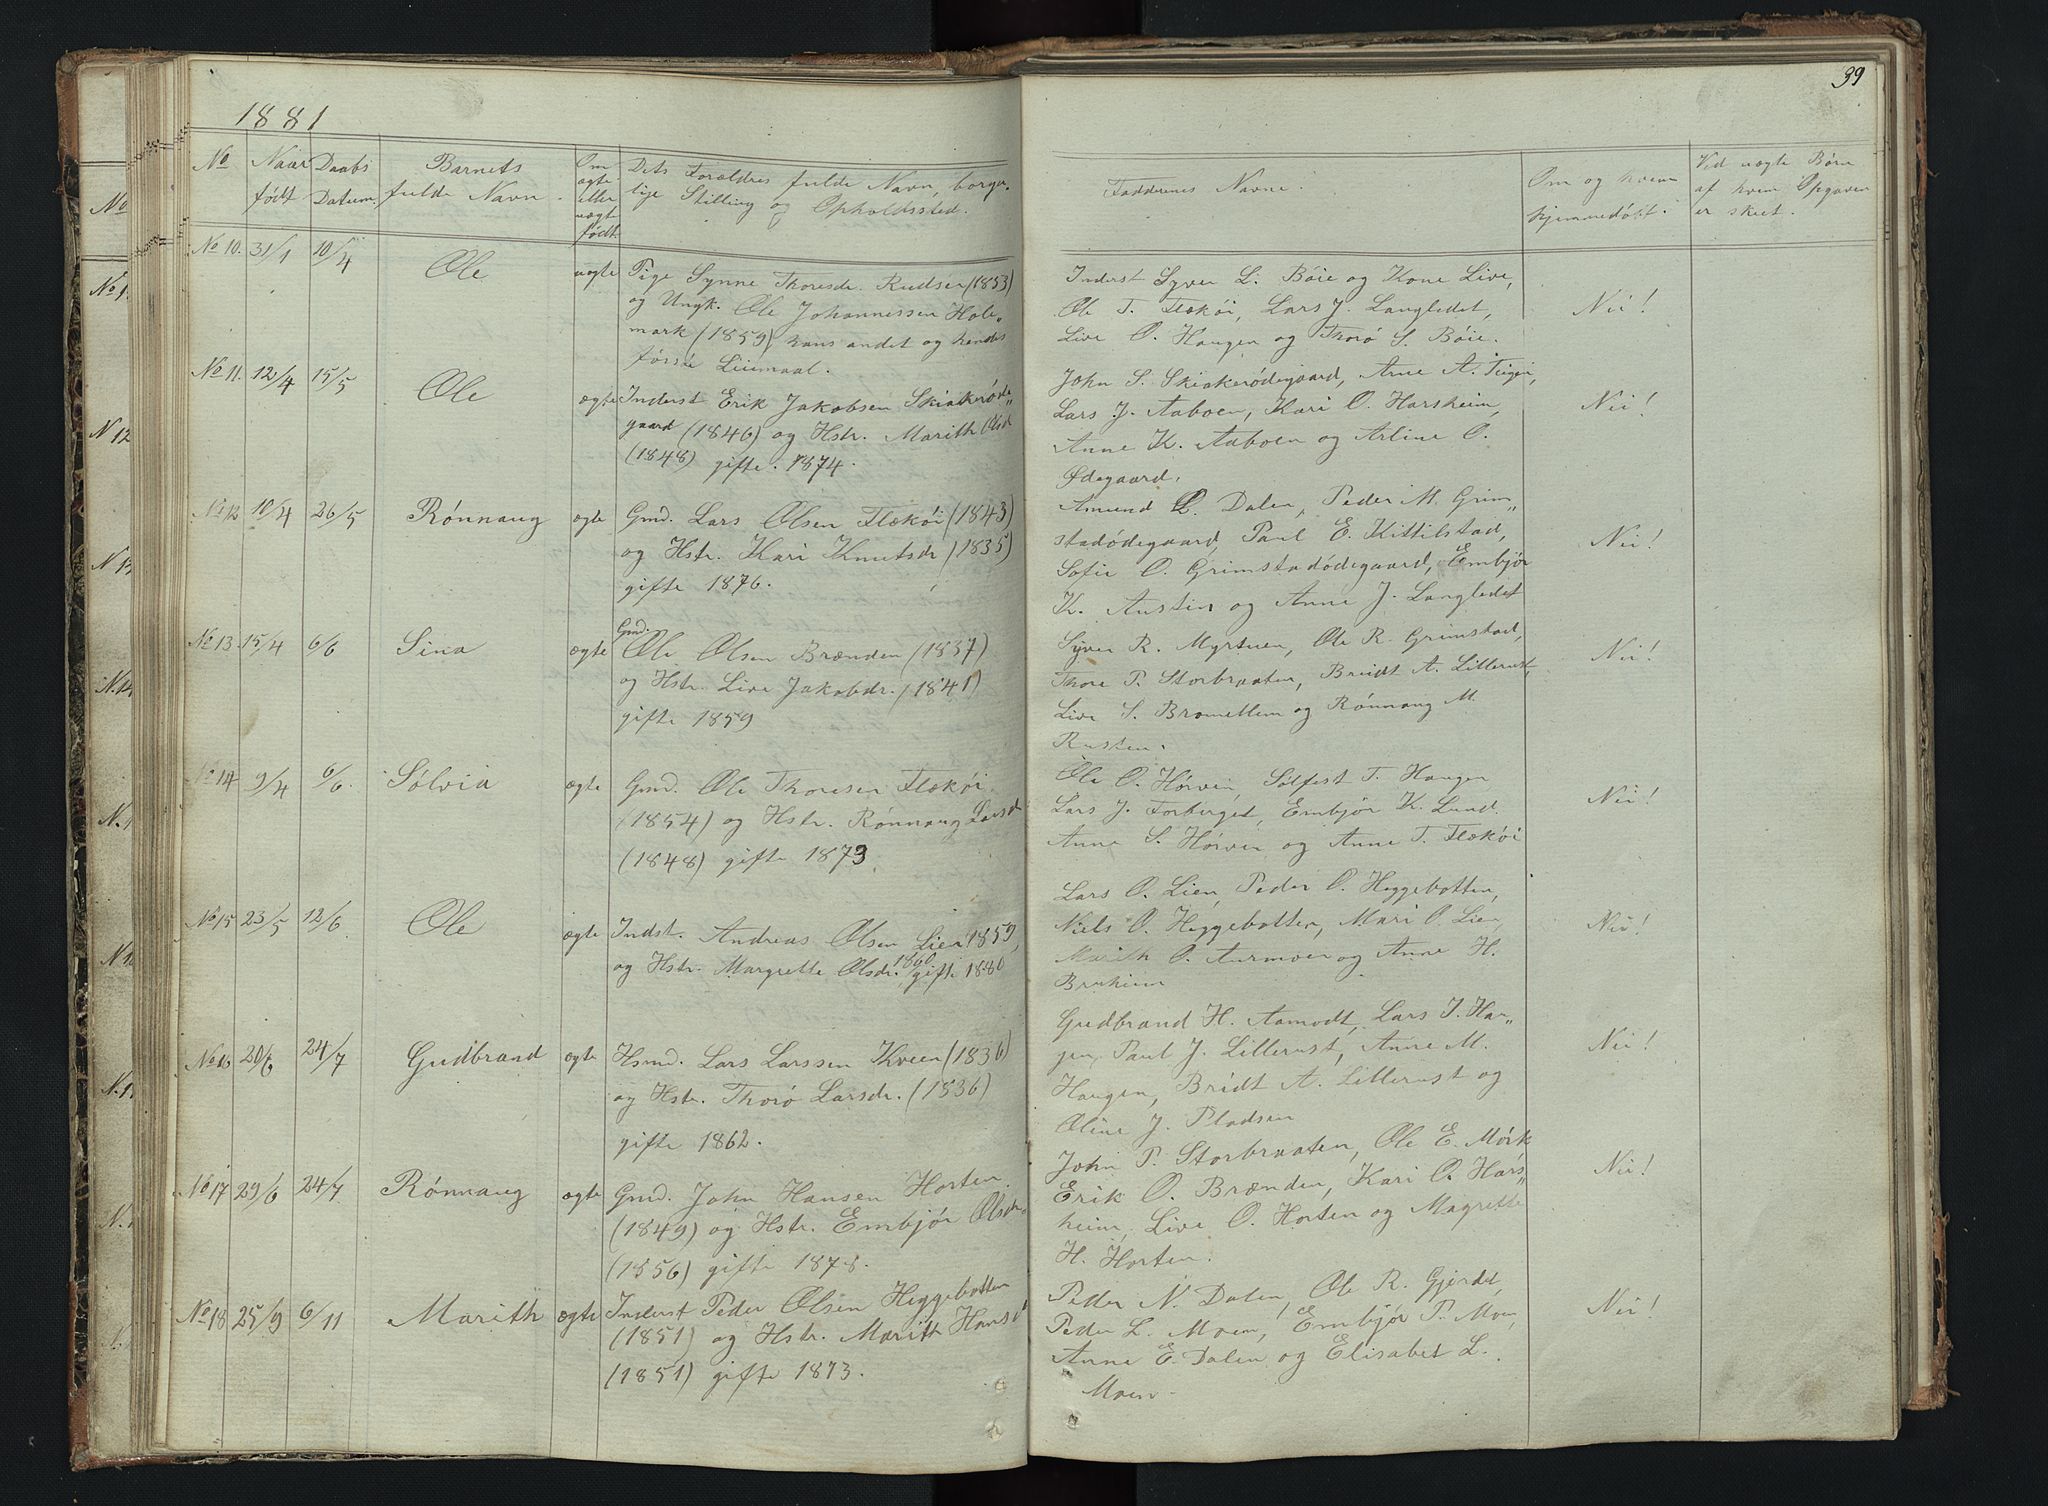 39
1881
No
Naar
født
Daabs
Datum.
Barnets
fulde Navn.
Om
ægte
eller
uægte
født
Dets Forældres fulde Navn, borger-
lige Stilling og Opholdssted.
Faddernes Navne.
Om og hvem
hjemmedøbt.
Ved uægte Børn
af hvem Opgaven
er skeet.
No 10. 31/1 10/4 Ole uægte Pige Synne Thoresdr. Rudsen (1853)
og Ungk. Ole Johannessen Hole„
mark (1859) hans andet og hendes
første Leiermaal.
Inderst Syver L. Bøie og Kone Live,
Ole T. Flekøi, Lars J. Langledet,
Live O. Haugen og Thorø S. Bøie.
Nei!
No 11. 12/4 15/5 Ole ægte Inderst Erik Jakobsen Skiakerøde„
gaard (1846) og Hstr. Marith Olsd
(1848) gifte. 1874.
John S. Skiakerødegaard, Arne A. Teigen,
Lars J. Aaboen, Kari O. Harsheim,
Anne K. Aaboen og Arline O.
Ødegaard.
Nei!
No 12 10/4 26/5 Rønnaug ægte Gmd. Lars Olsen Flekøi (1843)
og Hstr. Kari Knutsdr (1835)
gifte 1876.
Amund L. Dalen, Peder M. Grim„
stadødegaard, Paul E. Kittilstad,
Sofie O. Grimstadødegaard, Embjør
K. Austin og Anne J. Langledet
Nei!
No 13 15/4 6/6 Sina ægte Gmd.
Ole Olsen Brænden (1837)
og Hstr. Live Jakobdr. (1841)
gifte 1859
Syver R. Myrtuen, Ole R. Grimstad,
Thore P. Storbraaten, Breidt A. Lillerust,
Live S. Bromellem og Rønnaug M.
Rusten.
Nei!
No 14 9/4 6/6. Sølvia ægte Gmd. Ole Thoresen Flekøi
(1854) og Hstr. Rønnaug Larsd
(1848) gifte 1873.
Ole O. Hørven, Sølfest T. Haugen
Lars J. Forberget, Embjør K. Lund
Anne S. Hørven og Anne T. Flekøi
Nei!
No 15 23/5 12/6 Ole ægte Indst. Andreas Olsen Lien 1859,
og Hstr. Margrette Olsdr. 1860, gift 1880
Lars O. Lien, Peder O. Heggebotten,
Niels O. Heggebotten, Mari O. Lien,
Marith O. Aurmoen og Anne H.
Bruheim
Nei!
No 16 20/6 24/7 Gudbrand ægte Hsmd. Lars Larssen Kveen (1836)
og Hstr. Thorø Larsdr. (1836)
gifte 1862.
Gudbrand H. Aamodt, Lars J. Hau„
gen, Paul J. Lillerust, Anne M.
Haugen, Bridt A. Lillerust og
Oline J. Pladsen
Nei!
No 17 29/6 24/7 Rønnaug ægte Gmd. John Hansen Horten.
(1849) og Hstr. Embjør Olsdr.
(1856) gifte 1878.
John P. Storbraaten, Ole E. Mørk
Erik O. Brænden, Kari O. Hars„
heim, Live O. Horten og Magrette
H. Horten.
Nei!
No 18 25/9 6/11 Marith ægte Inderst Peder Olsen Heggebotten
(1851) og Hstr. Marith Hansd
(1851) gifte 1873.
Peder N. Dalen, Ole R. Gjerdet,
Peder L. Moen, Embjør P. Moen,
Anne E. Dalen og Elisabet L.
Moen.
Nei!